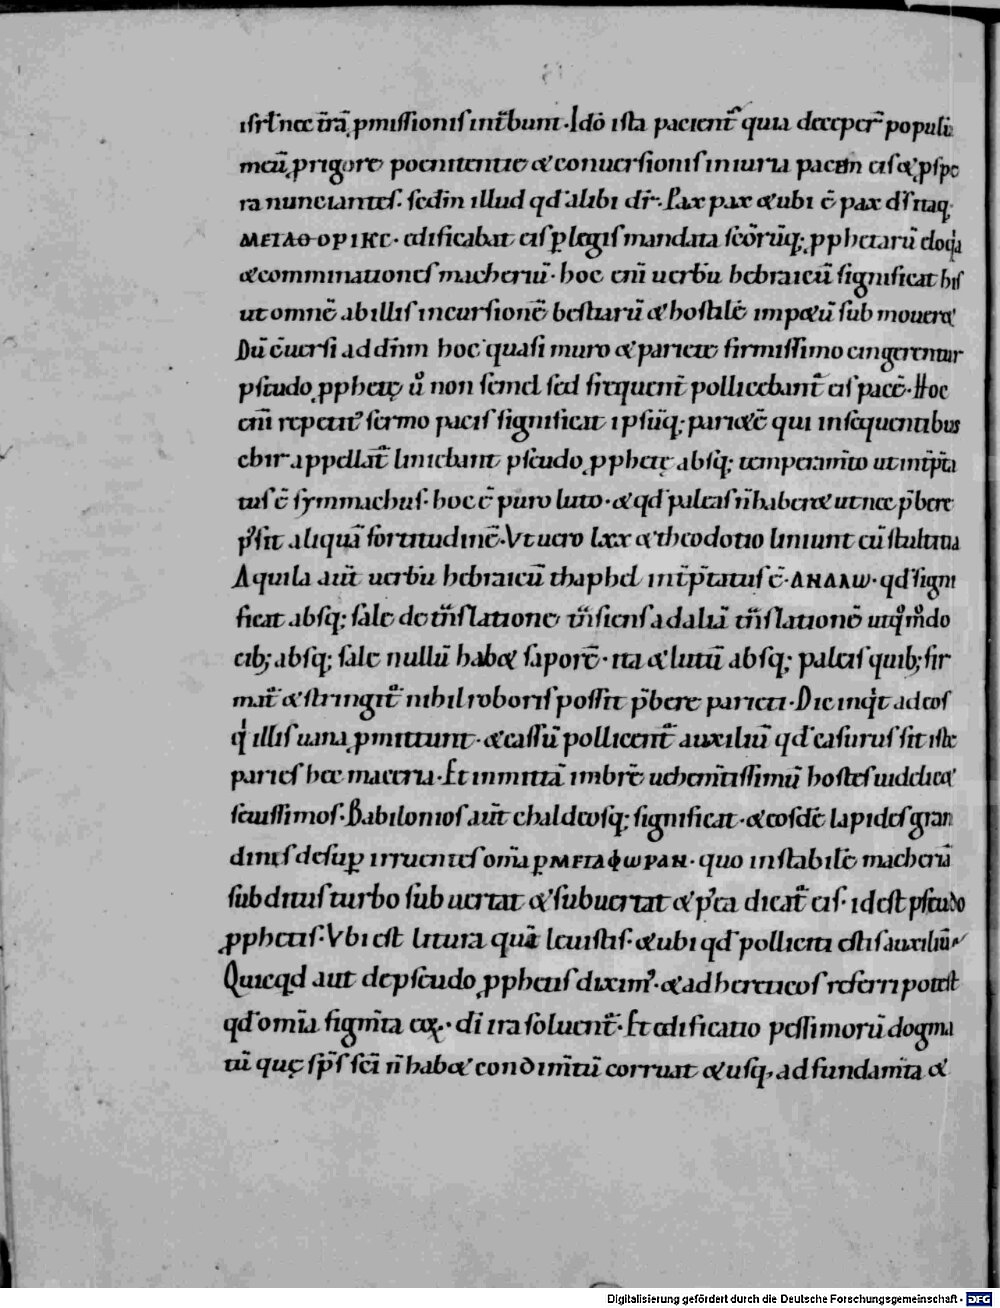 isrl̄ nec t̄rā ꝓmissionis int̄bunt · Idō ista pacient᷑ quia decepert̄ populū
meū ꝓ rigore poenitentie & conuersionis iniuria pacem eis & ꝓspe
ra nunciantes · sed in illud qd̄ alibi dr̄ · Pax pax & ubi ē pax dr̄ itaq;
ΜΕΤΑΘΟΡΙΚΕ · edificabat eis ꝑ legis mandata scōrūq; ꝓphetarū eloq̇a
& comminationes macheriū · hoc eni uerbū hebraicū significat his
ut omnē ab illis incursionē bestiarū & hostilē impetū sub mouer&
Dū c̄uersi ad dn̄m hoc quasi muro & pariete firmissimo cingerentur
pseudo ꝓphetę ů non semel sed frequent̄ pollicebant᷑ eis pacē · Hoc
eni repetit᷑ sermo pacis significat ipsūq; pariet̄ē qui in sequentibus
ebir appellat᷑ liniebant pseudo ꝓphetę absq; temperam̄to ut int̄p̄ta
tus ē symmachus · hoc ē puro luto · & qd̄ paleas n̄ haber& ut nec p̄bere
pˢsit aliquā fortitudinē · Vt uero lxx & theodotio liniunt eū stultitia
Aquila aut̄ uerbū hebraicū thaphel int̄p̄tatus ē · ΑΝΑΛΩ · qd̄ signi
ficat absq; sale de tn̄slatione tn̄siens ad aliā tn̄slationē ut quomᵒdo
cib; absq; sale nullū hab& saporē · ita & lutū absq; paleis quib; fir
mat᷑ & stringit᷑ nihil roboris possit p̄bere parieti · Dic inqͥt ad eos
qͥ illis uana ꝓmittunt · & cassū pollicent᷑ auxiliū qd̄ casurus sit iste
paries hec maceria · Et inmittā imbrē uehem̄tissimū hostes uidelic&
seuissimos · Babilonios aut̄ chaldeosq; significat · & eosdē lapides gran
dines desup̱ irruentes omīa ꝑ ΜΕΤΑΦΩΡΑΝ · quo instabilē macheriā
subditus turbo sub uertat & subuertat & pˢea dicat᷑ eis · id est pseudo
ꝓphetis · Vbi est litura quā leuistis · & ubi qd̄ polliciti estis auxiliū
Quicqd aut de pseudo ꝓphetis diximꝰ · & ad hereticos referri potest
qd̄ omīa figm̄ta eoꝝ · dī ira soluent᷑ · Et edificatio pessimorū dogma
tū quę sp̄s sci n̄ hab& condim̄tū corruat & usq; ad fundam̄ta &
Digitalisierung gefördert durch die Deutsche Forschungsgemeinschaft - DFG